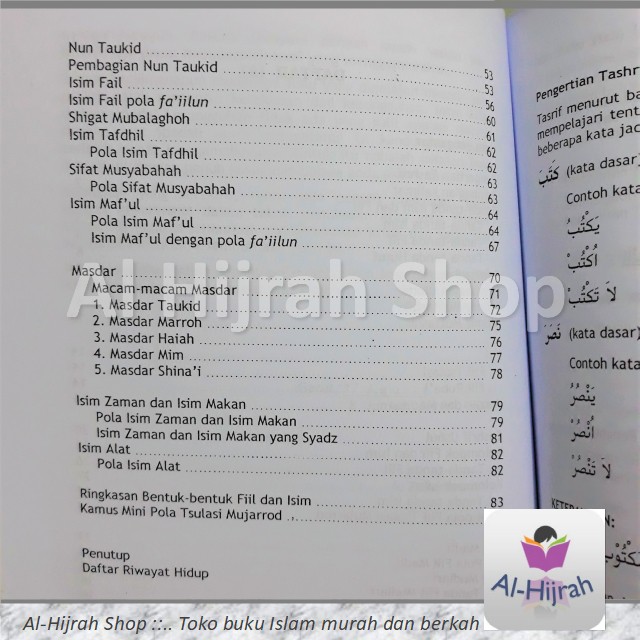 Nun Taukid ........ 53
Pembagian Nun Taukid ........ 53
Isim Fail ........ 56
Isim Fail pola fa'iilun ........ 60
Shigat Mubalaghoh ........ 61
Isim Tafdhil ........ 62
Pola Isim Tafdhil ........ 62
Sifat Musyabahah ........ 63
Pola Sifat Musyabahah ........ 63
Isim Maf'ul ........ 64
Pola Isim Maf'ul ........ 64
Isim Maf'ul dengan pola fa'iilun ........ 67
Masdar ........ 70
Macam-macam Masdar ........ 71
1. Masdar Taukid ........ 72
2. Masdar Marroh ........ 75
3. Masdar Haiah ........ 76
4. Masdar Mim ........ 77
5. Masdar Shina'i ........ 78
Isim Zaman dan Isim Makan ........ 79
Pola Isim Zaman dan Isim Makan ........ 79
Isim Zaman dan Isim Makan yang Syadz ........ 81
Isim Alat ........ 82
Pola Isim Alat ........ 82
Ringkasan Bentuk-bentuk Fiil dan Isim ........ 83
Kamus Mini Pola Tsulasi Mujarrod ........
Penutup
Daftar Riwayat Hidup
Pengertian Tashr
Tasrif menurut ba
mempelajari tent
beberapa kata jad
كَتَبَ (kata dasar)
Contoh kata
يَكْتُبُ
اُكْتُبْ
لاَ تَكْتُبْ
نَصَرَ (kata dasar)
Contoh kata
يَنْصُرُ
اُنْصُرْ
لاَ تَنْصُرْ
Al Hijrah Shop
Al-Hijrah
Al-Hijrah Shop ::.. Toko buku Islam murah dan berkah